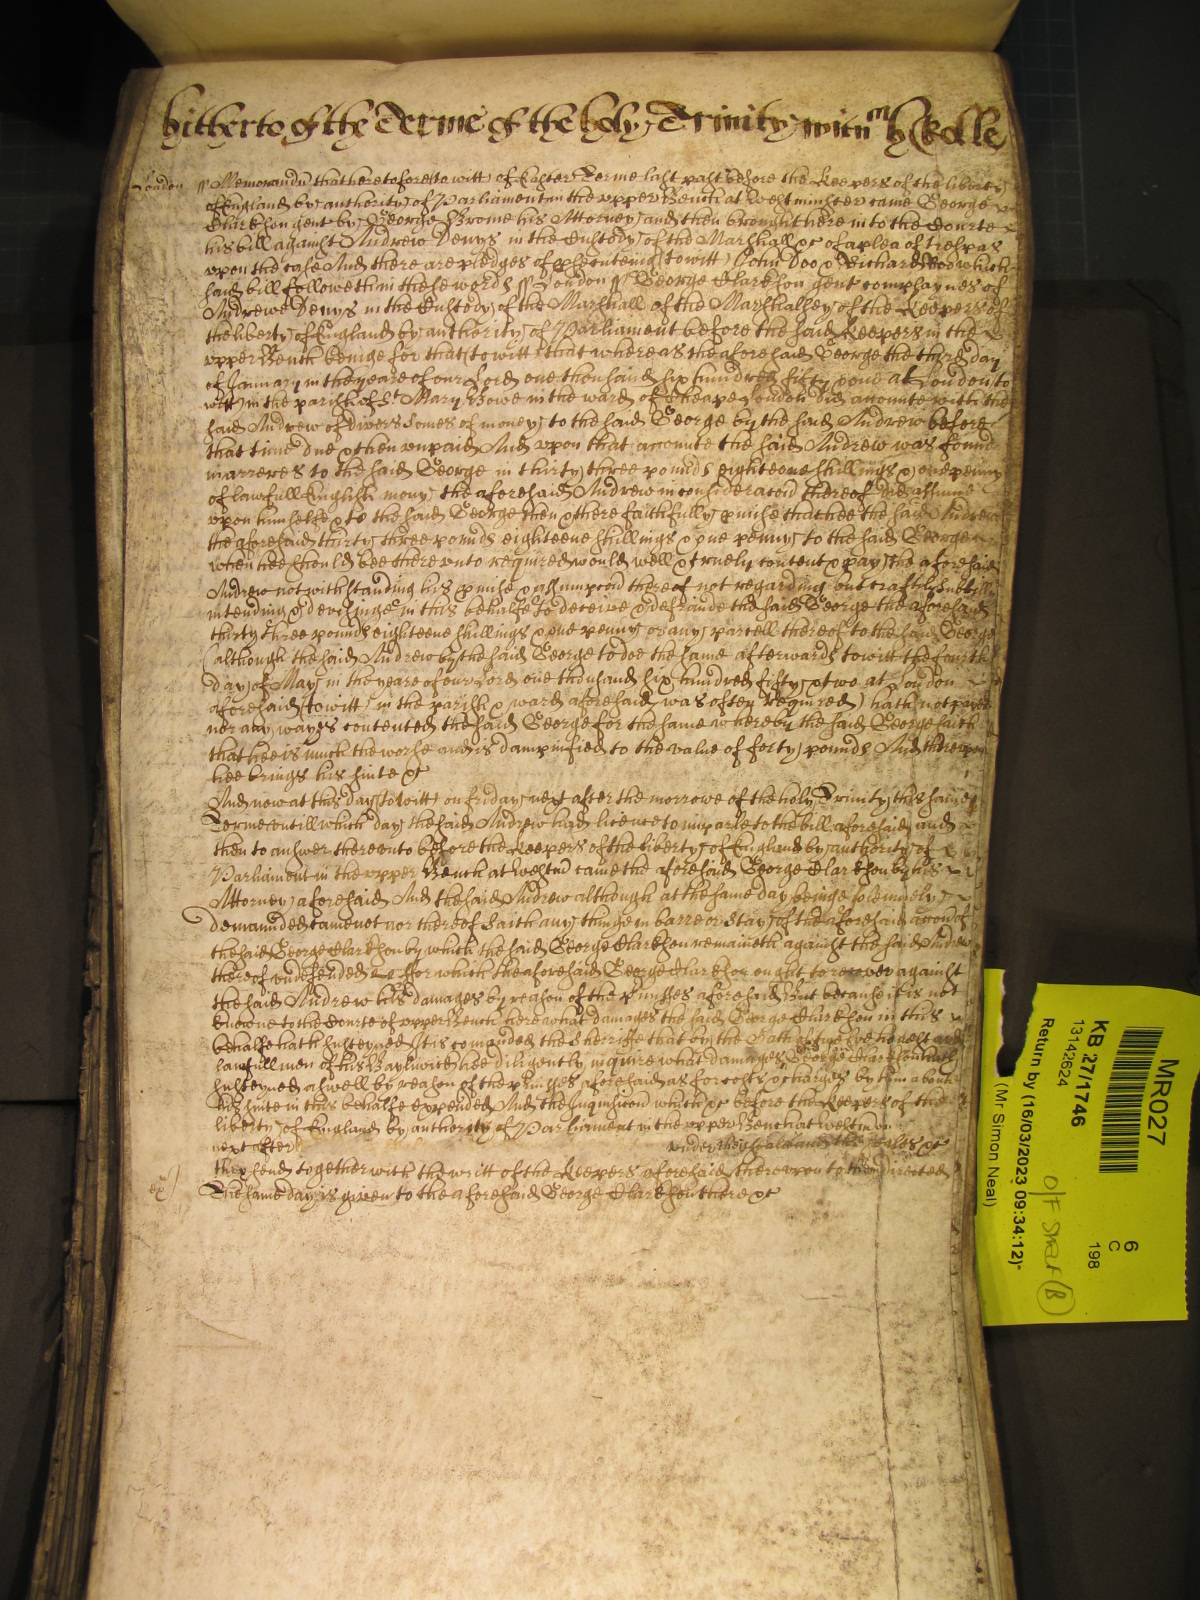 hitherto of the Terme of the holy Trinity witn by Rolle
London ss Memorand that heretofore to witt of Easter Terme last past before the Keepers of the liberty
of England by authority of Parliament in the upper Bench at Westminster came George
Clarkson gent by George Brome his Attorney and then brought here in to the Courte
his bill against Andrew Denys in the Custody of the Marshall &c of a plea of trespas
upon the case And there are pledges of psecuteing (to witt) John Doo & Richard Roo which
said bill followeth in these words ss London ss George Clarkson gent complaynes of
Andrewe Denys in the Custody of the Marshall of the Marshalsey of the Keepers of
the liberty of England by authority of Parliament before the said Keepers in the
upper Bench beinge for that to witt that whereas the aforesaid George the third day
of January in the yeare of our Lord one thousand six hundred fifty & one at London to
witt in the parish of St Mary Bowe in the ward of Cheape London did accounte with the
said Andrew of divers somes of money to the said George by the said Andrew before
that time due & then unpaid And upon that accounte the said Andrew was found
in arreres to the said George in thirty three pounds eighteene shillings & one penny
of lawfull English mony the aforesaid Andrew in consideracoid thereof did assume
upon himselfe & to the said George then & there faithfully pmise that hee the said Andrew
the aforesaid thirty three pounds eighteene shillings & one penny to the said George
when hee should bee thereunto required would well & truely content & pay the aforesaid
Andrew notwithstanding his pmise & assumpcoid thereof not regarding but craftily & subtilly
intending & deviseinge in this behalfe to deceive & defraude the said George the aforesaid
thirty three pounds eighteene shillings & one penny or any parcell thereof to the said George
(although the said Andrew by the said George to doe the same afterwards to witt the fourth
day of May in the yeare of our Lord one thousand six hundred fifty & two at London
aforesaid (to witt) in the parish & ward aforesaid was often required) hath not payed
nor any wayes contented the said George for the same whereby the said George saith
that hee is much the worse and is dampnified to the value of forty pounds And thereupon
hee brings his suite &c
And now at this day (to witt) on friday next after the morrowe of the holy Trinity this same
Terme untill which day the said Andrew had licence to imparle to the bill aforesaid and
then to answer thereunto before the Keepers of the liberty of England by authority of
Parliament in the upper Bench at Westm came the aforesaid George Clarkson by his
Attorney aforesaid And the said Andrew although at the same day beinge solemnely
demaunded came not nor thereof saith any thinge in barre or stay of the aforesaid accon of
the said George Clarkson by which the said George Clarkson remaineth against the said Andrew
thereof undefended ffor which the aforesaid George Clarkson ought to recover against
the said Andrew his damages by reason of the pmisses aforesaid But because it is not
knowne to the Courte of upper Bench here what damages the said George Clarkson in this
behalfe hath susteyned It is comanded the Sherriffe that by the Oath of twelve honest and
lawfull men of his Baylywicke hee diligently inquire what damages George Clarkson hath
susteyned aswell by reason of the pmisses aforesaid as for costs & charges by him about
his suite in this behalfe expended And the Inquisicoid which &c before the Keepers of the
liberty of England by authority of Parliament in the upper Bench at Westm on
next after under their seales and the seales &c
they send together with the writt of the Keepers aforesaid thereupon to them directed
The same day is given to the aforesaid George Clarkson there &c
MR027
KB 27/1746
13142624
Return by (16/03/2023 09:34:12)-
(Mr Simon Neal)
6
C
198
O/F Shelf B